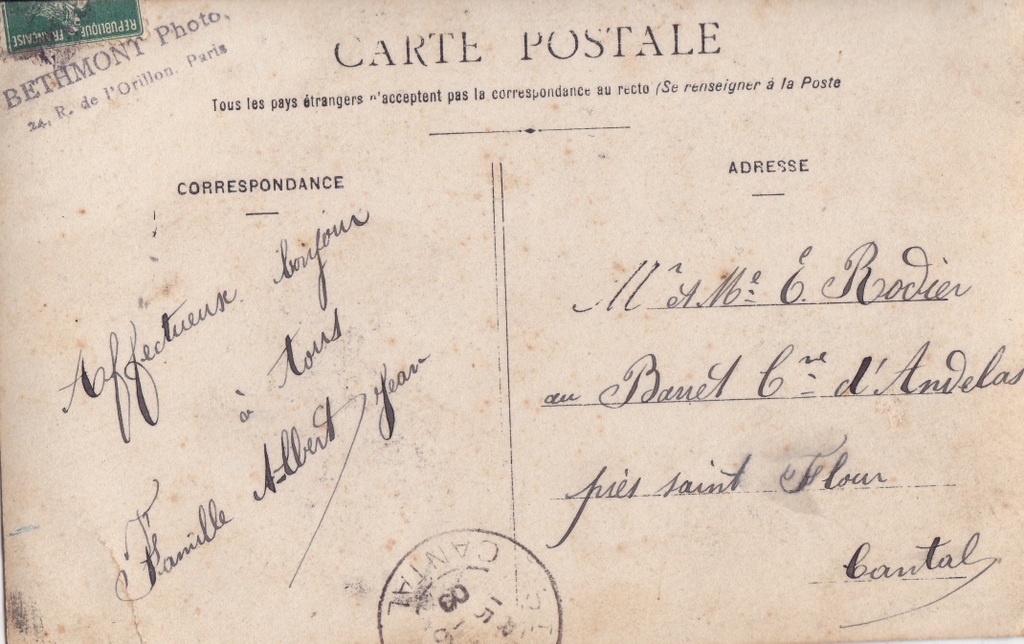 REPUBLIQUE FRANÇAISE
BETHMONT Photo.
24, R. de l'Orillon. Paris
CARTE POSTALE
Tous les pays étrangers n'acceptent pas la correspondance au recto (Se renseigner à la Poste
CORRESPONDANCE
Affectueux bonjour
à tous
Famille Albert Jean
ADRESSE
Mr et Me E. Rodier
au Barret Cne d'Andelas
près saint Flour
Cantal
CANTAL
15
09